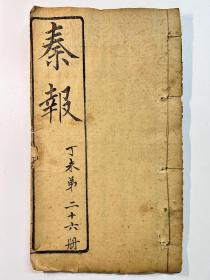 秦報
丁未第二十六册